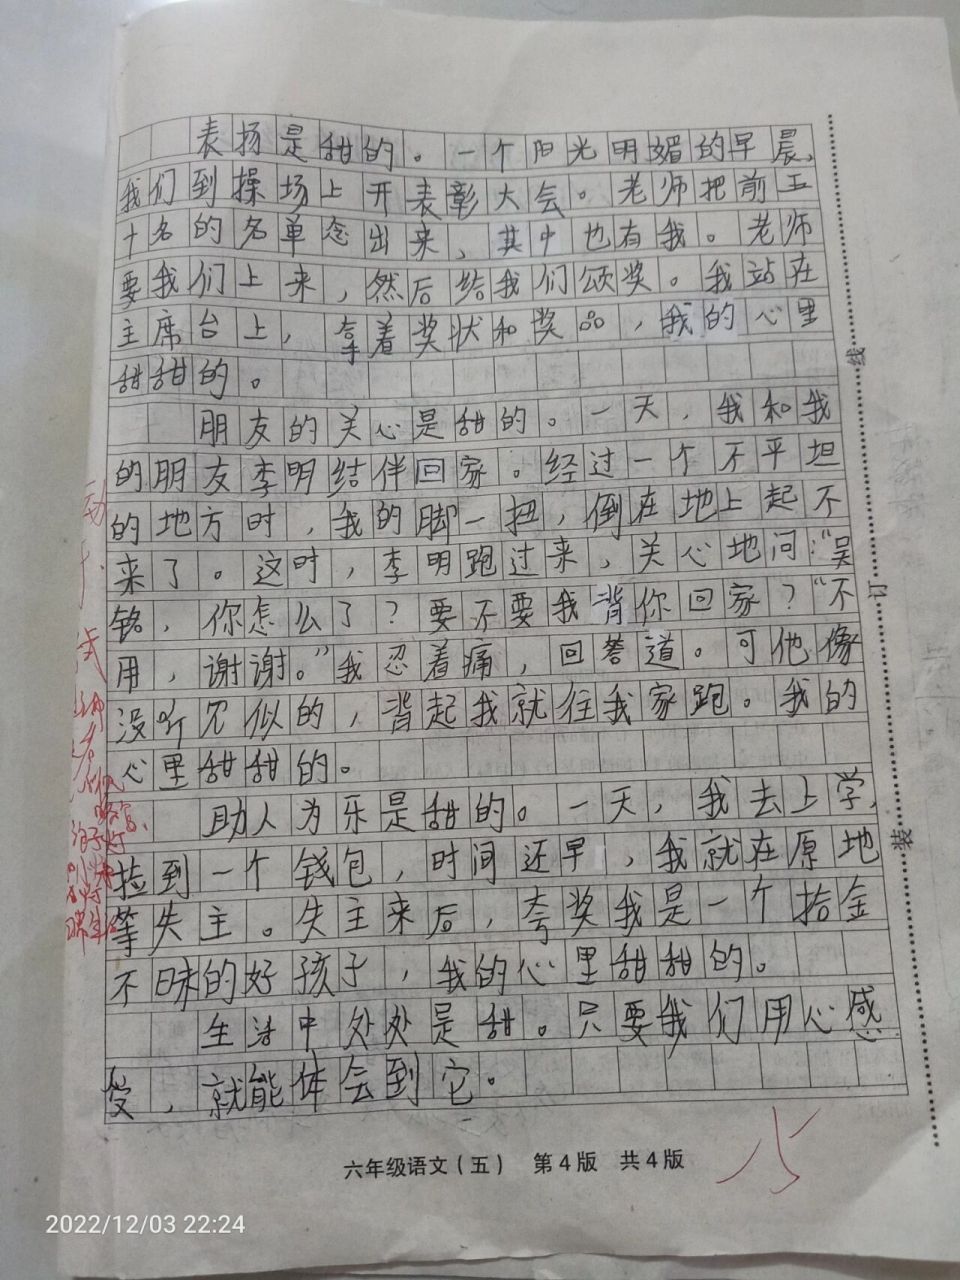 表扬是甜的。一个阳光明媚的早晨,
我们到操场上开表彰大会。老师把前五
十名的名单念出来，其中也有我。老师
要我们上来，然后给我们颁奖。我站在
主席台上，拿着奖状和奖品，我的心里
甜甜的。
朋友的关心是甜的。一天，我和我
的朋友李明结伴回家。经过一个不平坦
的地方时，我的脚一扭，倒在地上起不
来了。这时，李明跑过来，关心地问:“吴
铭，你怎么了？要不要我背你回家？“不
用，谢谢。”我忍着痛，回答道。可他像
没听见似的，背起我就往我家跑。我的
心里甜甜的。
助人为乐是甜的。一天，我去上学,
捡到一个钱包，时间还早，我就在原地
等失主。失主来后，夸奖我是一个拾金
不昧的好孩子，我的心里甜甜的。
生活中处处是甜。只要我们用心感
受，就能体会到它。
线
订
装
六年级语文（五） 第4版 共4版
2022/12/03 22:24